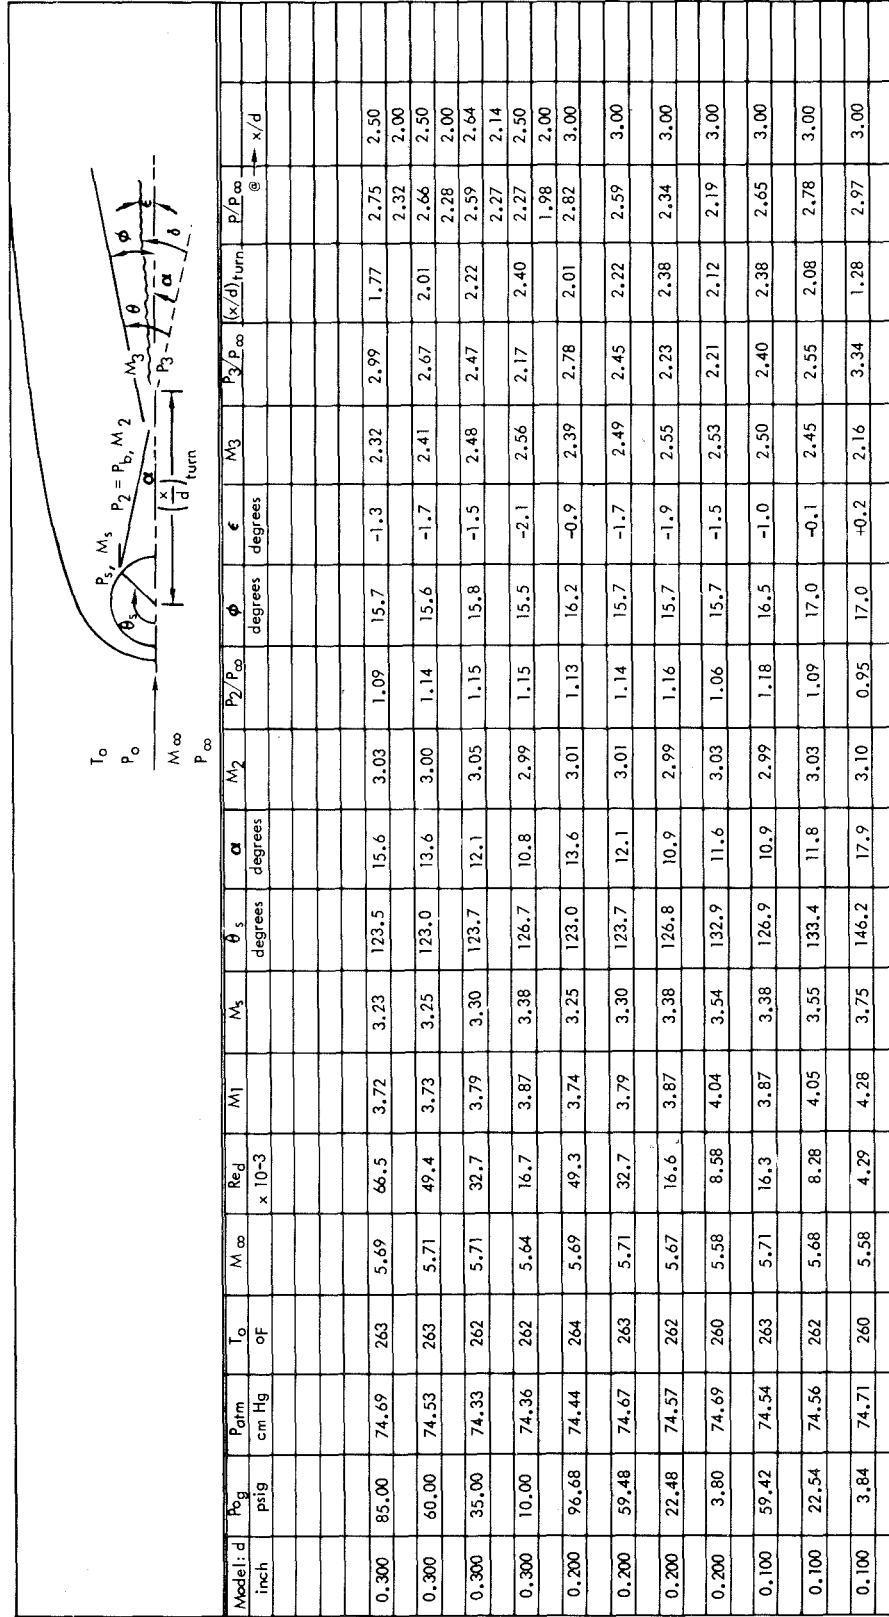 T₀
P₀
M∞
P∞
θs
Ps, Ms
P2 = Pb, M2
α
(x/d)turn
M3
P3
θ
α
φ
ε
δ
Model: d Pog Patm To M∞ Red M1 Ms θs α M2 P2/P∞ φ ε M3 P3/P∞ (x/d)turn P/P∞
inch psig cm Hg oF x 10-3 degrees degrees degrees degrees @ → x/d
0.300 85.00 74.69 263 5.69 66.5 3.72 3.23 123.5 15.6 3.03 1.09 15.7 -1.3 2.32 2.99 1.77 2.75 2.50
2.32 2.00
0.300 60.00 74.53 263 5.71 49.4 3.73 3.25 123.0 13.6 3.00 1.14 15.6 -1.7 2.41 2.67 2.01 2.66 2.50
2.28 2.00
0.300 35.00 74.33 262 5.71 32.7 3.79 3.30 123.7 12.1 3.05 1.15 15.8 -1.5 2.48 2.47 2.22 2.59 2.64
2.27 2.14
0.300 10.00 74.36 262 5.64 16.7 3.87 3.38 126.7 10.8 2.99 1.15 15.5 -2.1 2.56 2.17 2.40 2.27 2.50
1.98 2.00
0.200 96.68 74.44 264 5.69 49.3 3.74 3.25 123.0 13.6 3.01 1.13 16.2 -0.9 2.39 2.78 2.01 2.82 3.00
0.200 59.48 74.67 263 5.71 32.7 3.79 3.30 123.7 12.1 3.01 1.14 15.7 -1.7 2.49 2.45 2.22 2.59 3.00
0.200 22.48 74.57 262 5.67 16.6 3.87 3.38 126.8 10.9 2.99 1.16 15.7 -1.9 2.55 2.23 2.38 2.34 3.00
0.200 3.80 74.69 260 5.58 8.58 4.04 3.54 132.9 11.6 3.03 1.06 15.7 -1.5 2.53 2.21 2.12 2.19 3.00
0.100 59.42 74.54 263 5.71 16.3 3.87 3.38 126.9 10.9 2.99 1.18 16.5 -1.0 2.50 2.40 2.38 2.65 3.00
0.100 22.54 74.56 262 5.68 8.28 4.05 3.55 133.4 11.8 3.03 1.09 17.0 -0.1 2.45 2.55 2.08 2.78 3.00
0.100 3.84 74.71 260 5.58 4.29 4.28 3.75 146.2 17.9 3.10 0.95 17.0 +0.2 2.16 3.34 1.28 2.97 3.00